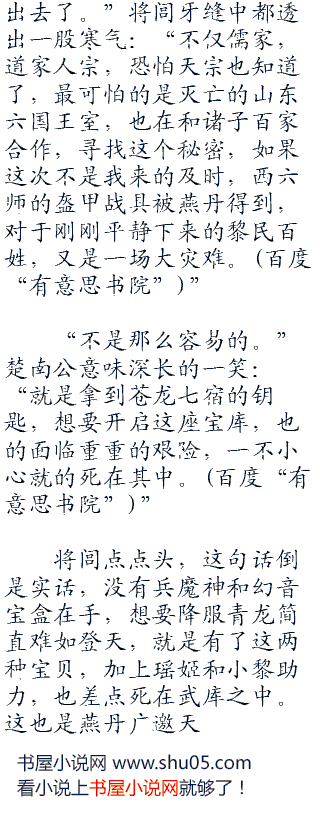 出去了。”将闾牙缝中都透
出一股寒气：“不仅儒家，
道家人宗，恐怕天宗也知道
了，最可怕的是灭亡的山东
六国王室，也在和诸子百家
合作，寻找这个秘密，如果
这次不是我来的及时，西六
师的盔甲战具被燕丹得到，
对于刚刚平静下来的黎民百
姓，又是一场大灾难。(百度
“有意思书院”)”
“不是那么容易的。”
楚南公意味深长的一笑：
“就是拿到苍龙七宿的钥
匙，想要开启这座宝库，也
的面临重重的艰险，一不小
心就的死在其中。(百度“有
意思书院”)”
将闾点点头，这句话倒
是实话，没有兵魔神和幻音
宝盒在手，想要降服青龙简
直难如登天，就是有了这两
种宝贝，加上瑶姬和小黎助
力，也差点死在武库之中。
这也是燕丹广邀天
书屋小说网 www.shu05.com
看小说上书屋小说网就够了！